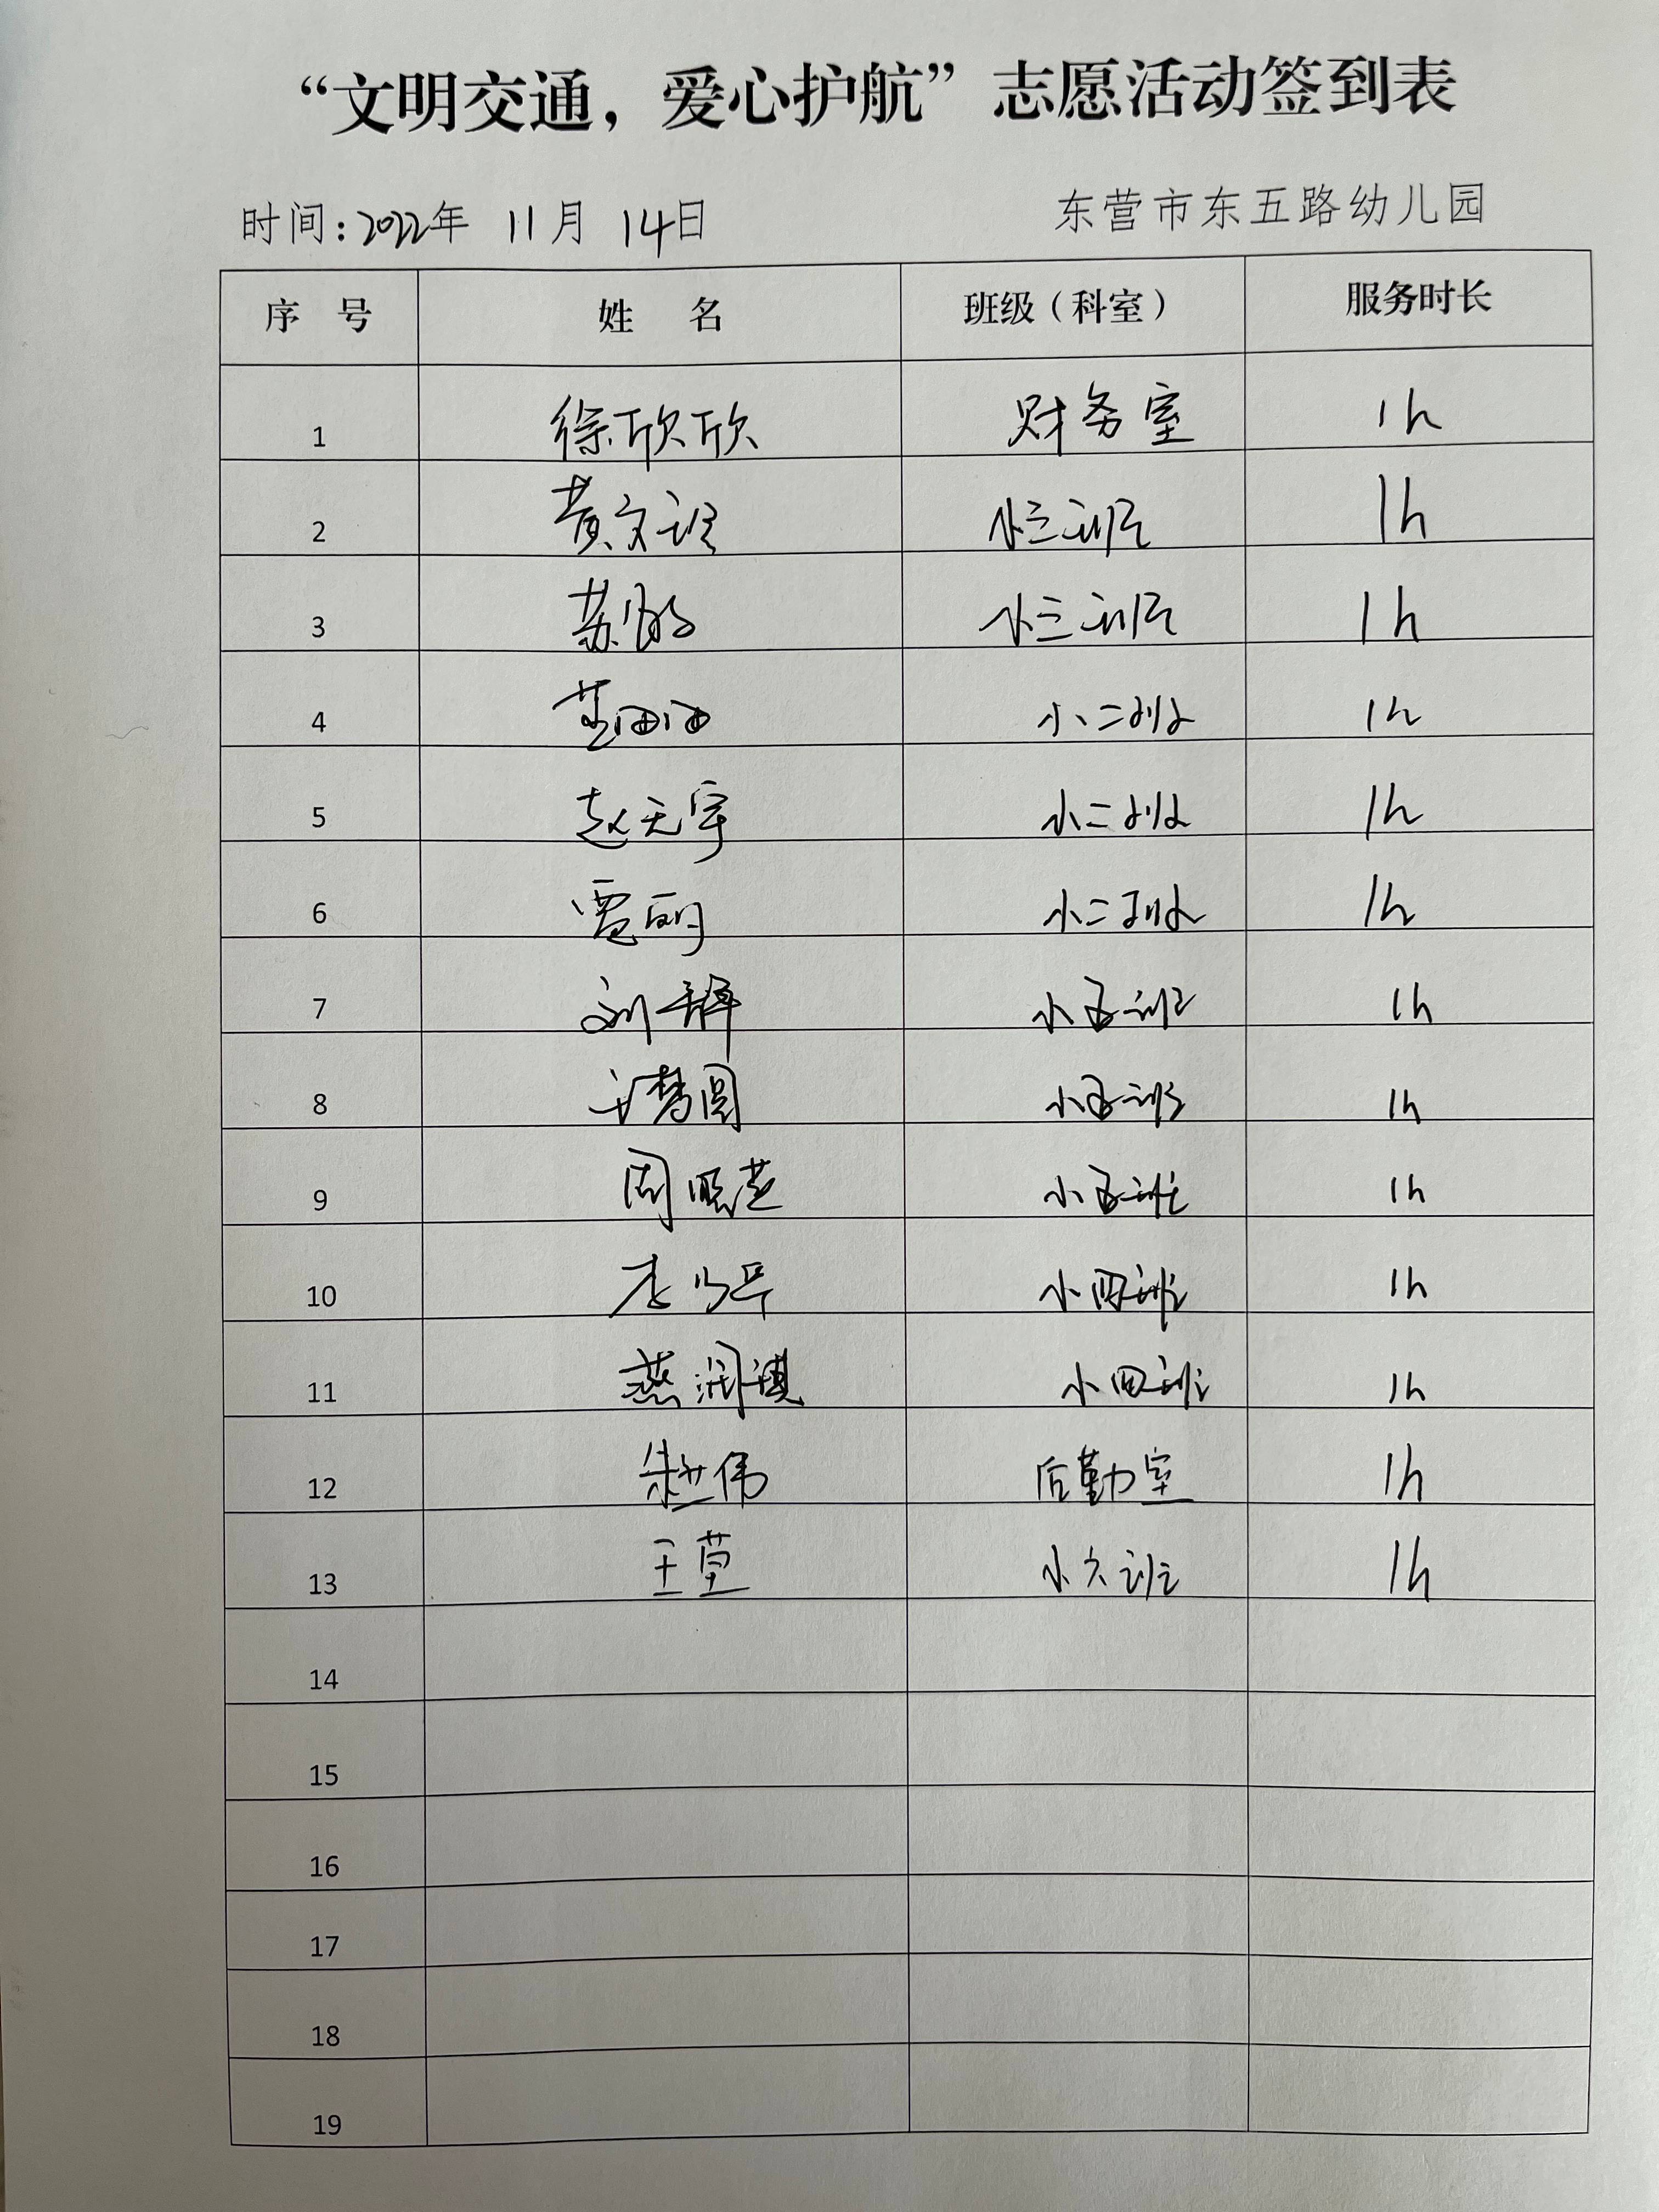 “文明交通，爱心护航”志愿活动签到表
时间：2022年 11月 14日 东营市东五路幼儿园
序号 姓名 班级（科室） 服务时长
1 徐欣欣 财务室 1h
2 黄文 小三班 1h
3 苏 小三班 1h
4 小二班 1h
5 赵天宇 小二班 1h
6 雷丽 小二班 1h
7 刘 小五班 1h
8 于梦圆 小五班 1h
9 周 小五班 1h
10 李 小四班 1h
11 燕润祺 小四班 1h
12 朱 伟 后勤室 1h
13 王萱 小六班 1h
14
15
16
17
18
19